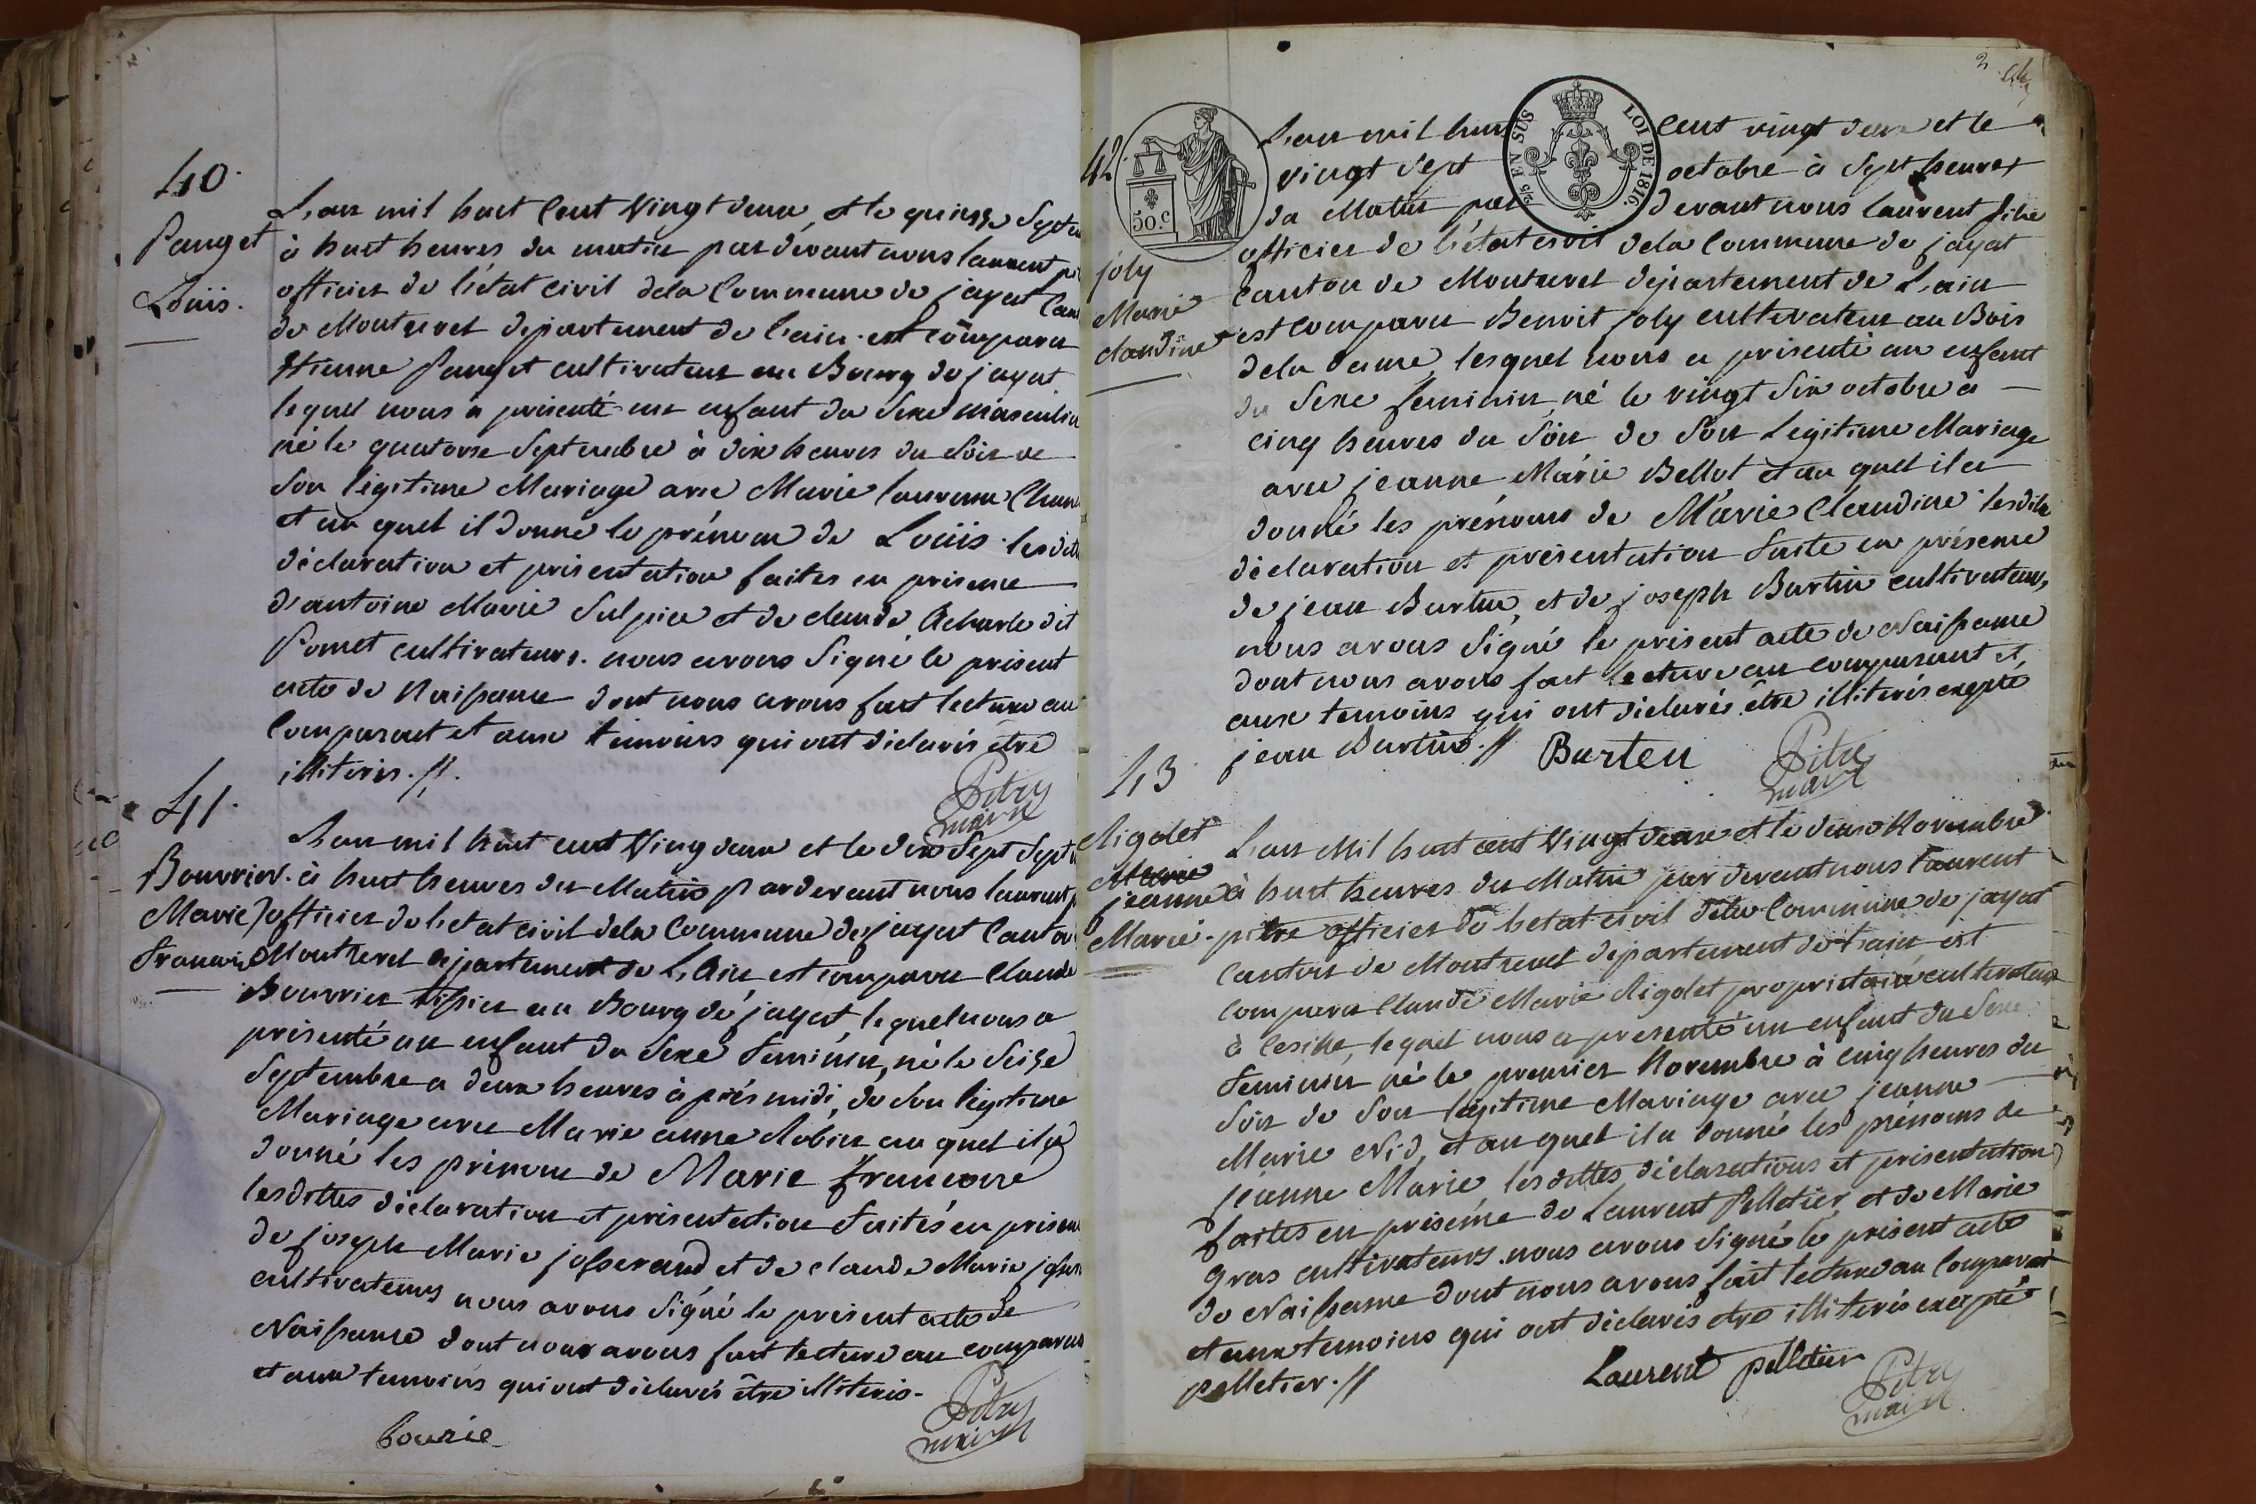 40.
Panget
Louis.
L'an mil huit Cent Vingt deux, et le quinze Septem
à huit heures du matin par devant nous laurent pi
officier de l'état civil dela Commune de jayat Cant
de Montrevel departement de l'ain. est comparu
Etienne Panget cultivateur au Bourg de jayat
lequel nous a présenté un enfant du Sexe masculin
né le quatorse Septembre à dix heures du Soir de
Son légitime Mariage avec Marie laurence Chan
et au quel il donné le prénom de Louis. les ditt
déclaration et présentation faites en présence
d'antoine Marie Sulpice et de claude Acharle dit
Pomet cultivateurs. nous avons Signé le présent
acte de Naissance dont nous avons fait lecture au
Comparant et aux témoins qui ont déclarés être
illiterés.//.
Pitre
maire
41.
Bouvrier.
Marie
francoise
L'an mil huit cent Ving deux et le dix Sept Septe
à huit heures du Matin par devant nous laurent p
officier de l'etat civil dela Commune de jayat Canton
Montrevel département de L'Ain est comparu Claude
Bouvrier tissier au Bourg de jayat, lequel nous a
présenté un enfant du Sexe feminin, né le Seize
Septembre a deux heures après midi, de Son légitime
Mariage avec Marie anne Robin au quel il a
donné les prénoms de Marie francoise
lesdittes déclaration et présentation faites en présen
de joseph Marie josserand et de claude Marie joss
cultivateurs nous avons Signé le présent acte de
Naissance dont nous avons fait lecture au comparan
et aux temoins qui ont déclarés être illiterés.
Pitre
maire
2
42.
50.c
2/5 EN SUS
LOI DE 1816.
joly
Marie
claudine
L'an mil huit Cent vingt deux et le
vingt Sept octobre à Sept heures
du Matin par devant nous laurent pitre
officier de l'état civil dela Commune de jayat
Canton de Montrevel département de L'ain
est comparu Benoit joly cultivateur au Bois
dela dame, lesquel nous a présenté un enfant
du Sexe feminin, né le vingt Six octobre à
cinq heures du Soir de Son Légitime Mariage
avec jeanne Marie Bellot et au quel il a
donné les prénoms de Marie Claudine. lesdite
déclaration et présentation faite en présence
de jean Burtin, et de joseph Burtin cultivateurs,
nous avons Signé le présent acte de Naissance
dont nous avons fait lecture au comparant et,
aux temoins qui ont déclarés être illiterés excepté
jean Burtin.// Burten
Pitre
maire
43
Rigolet
Marie
jeanne
Marie.
L'an Mil huit cent Vingt deux et le deux Novembre
à huit heures du Matin par devant nous Laurent
pitre officier de l'etat civil dela Commune de jayat
Canton de Montrevel département de L'ain, est
comparu Claude Marie Rigolet propriétaire cultivateur
à Cesille, lequel nous a présenté un enfant du Sexe
feminin né le premier Novembre à cinq heures du
Soir de Son légitime Mariage avec jeanne
Marie Nid, et au quel il a donné les prénoms de
jeanne Marie lesdittes déclarations et présentation
faites en présence de Laurent Pelletier, et de Marie
Gras cultivateurs. nous avons Signé le présent acte
de Naissance dont nous avons fait lecture au Comparant
et aux temoins qui ont déclarés etre illiterés excepté
pelletier.//
Laurent pelletier
Pitre
maire